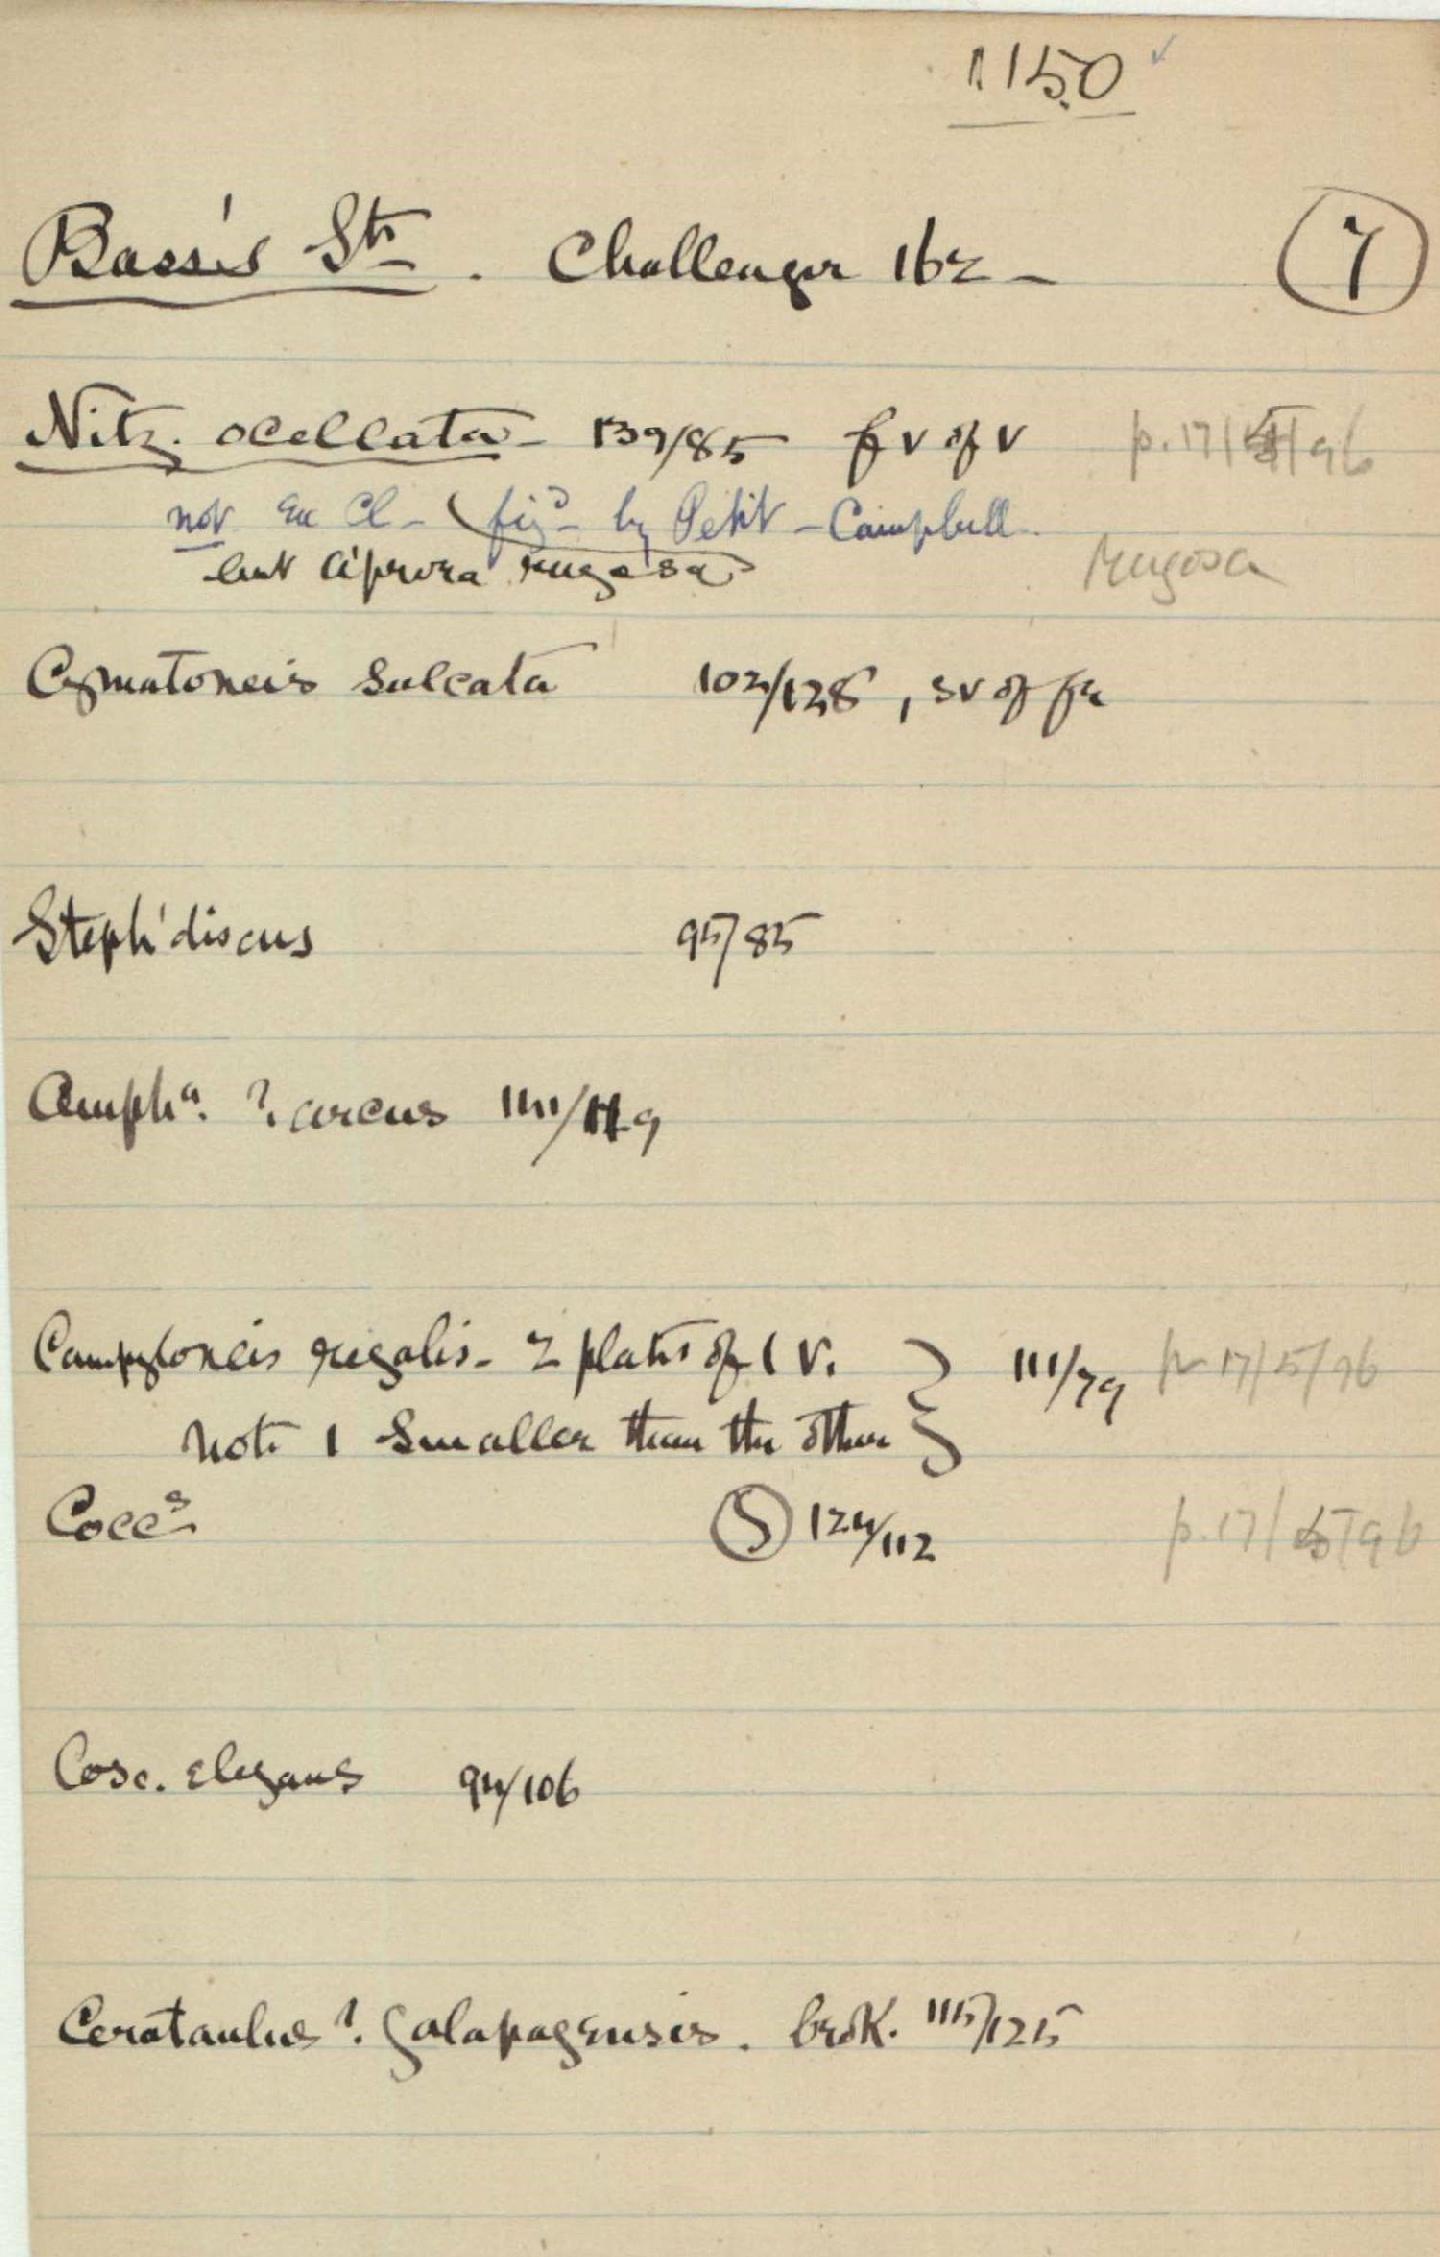 1150 ✓
Bass's Str. Challenger 162 - 7
Nitz. ocellata - 139/85 fv of v p. 17/5/96
not in Cl - fig^d by Petit - Campbell
but a'prora rugosa Rugosa
Cymatoneis sulcata 102/128, sv of
Steph'discus 95/85
Amph^a. ? arcus 141/119
Campyloneis regalis - 2 plates of 1 v. } 111/79 p 17/5/96
note 1 smaller than the other
Cocc^s S 124/112 p. 17/5/96
Cosc. elegans 94/106
Cerataulus ?. galapagensis. brok. 115/125